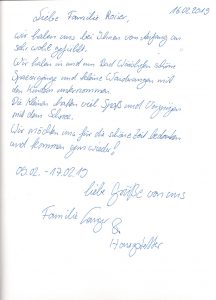 16.02.2019
Liebe Familie Rosier,
wir haben uns bei Ihnen von Anfang an
sehr wohl gefühlt.
Wir haben in und um Bad Wörishofen schöne
Spaziergänge und kleine Wanderungen mit
den Kindern unternommen.
Die Kleinen hatten viel Spaß und Vergnügen
mit dem Schnee.
Wir möchten uns für die schöne Zeit bedanken
und kommen gern wieder!
09.02. - 17.02.19
liebe Grüße von uns
Familie
&